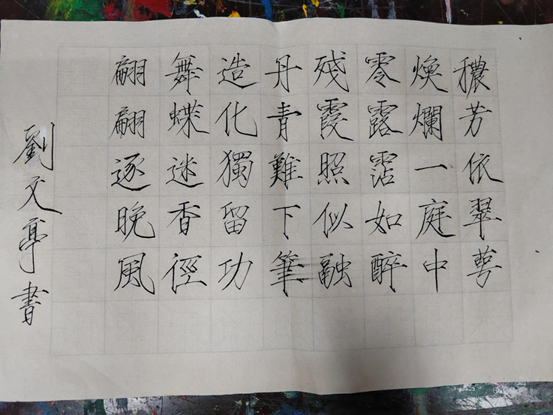 穠芳依翠萼
煥爛一庭中
零露霑如醉
殘霞照似融
丹青難下筆
造化獨留功
舞蝶迷香徑
翩翩逐晚風
劉文亭書